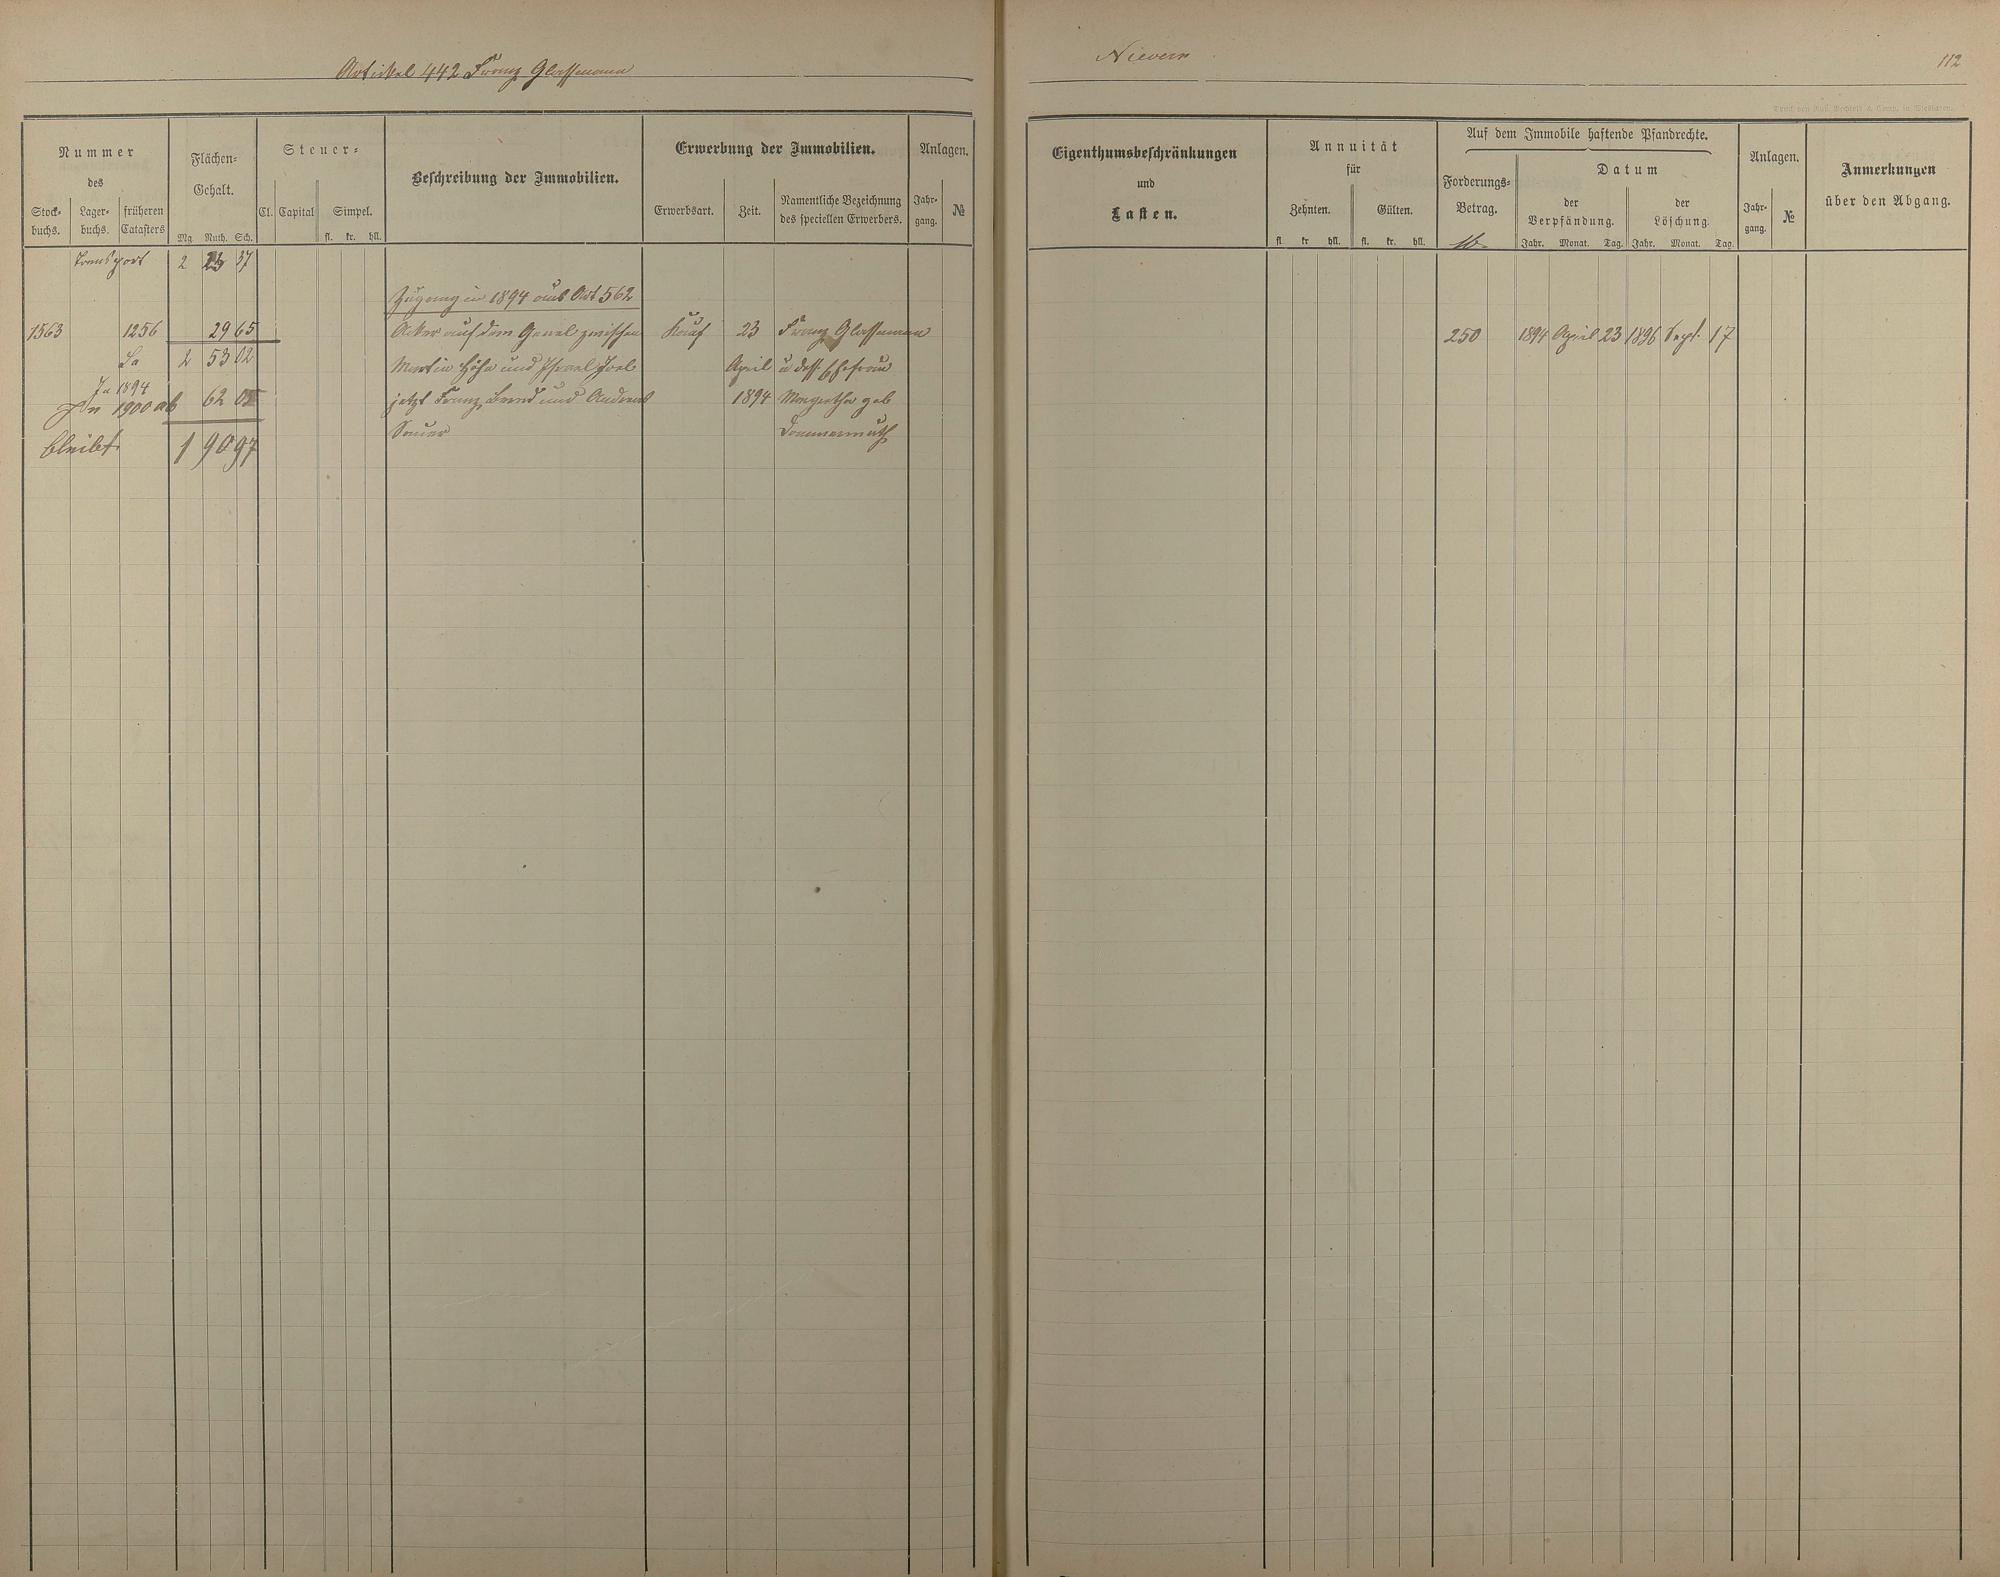 Artikel 442 Franz Glassmann
Nievern
112
Nummer
des
Stock-
buchs.
Lager-
buchs.
früheren
Catasters
Flächen-
Gehalt.
Mg. Ruth. Sch.
Steuer-
Cl. Capital Simpel.
fl. kr. hll.
Beschreibung der Immobilien.
Erwerbung der Immobilien.
Erwerbsart. Zeit.
Namentliche Bezeichnung
des speciellen Erwerbers.
Anlagen.
Jahr-
gang.
№
Eigenthumsbeschränkungen
und
Lasten.
Annuität
für
Zehnten. Gülten.
fl. kr hll. fl. kr. hll.
Auf dem Immobile haftende Pfandrechte.
Forderungs-
Betrag.
Datum
der
Verpfändung.
der
Löschung.
Jahr. Monat. Tag. Jahr. Monat. Tag.
Anlagen.
Jahr-
gang.
№
Anmerkungen
über den Abgang.
Transport 2 23 37
Zugang in 1894 aus Art 562
1563 1256 29 65 Acker auf dem zwischen Kauf 23 Franz Glassmann 250 1894 April 23 1896 Sept. 17
Sa 2 53 02 Martin Höhn und Israel Joel April u dess Ehefrau
In 1894
u 1900 ab 62 05 jetzt Franz und Andreas 1894 Margretha geb
bleibt 1 90 97 Sauer Dommermuth